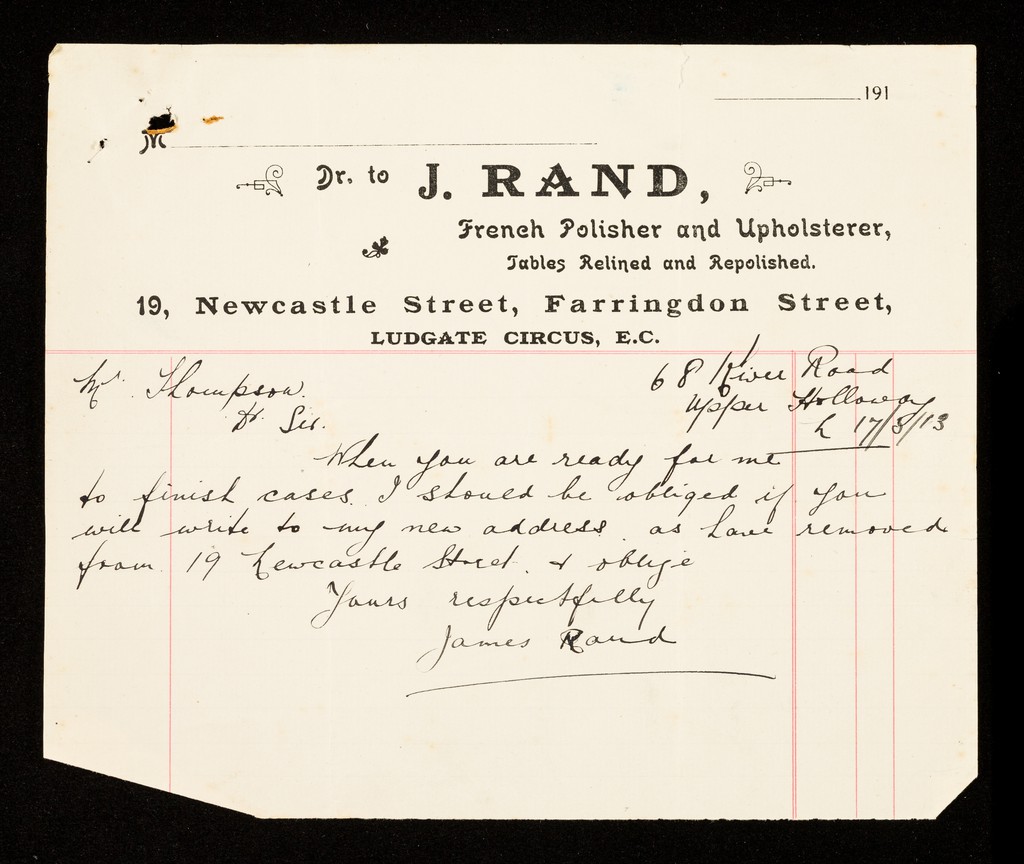 191
M
Dr. to J. RAND,
French Polisher and Upholsterer,
Tables Relined and Repolished.
19, Newcastle Street, Farringdon Street,
LUDGATE CIRCUS, E.C.
68 River Road
Upper Holloway
N 17/3/13
Mr. Thompson.
Dr. Sir.
When you are ready for me
to finish cases. I should be obliged if you
will write to my new address. as have removed
from 19 Newcastle Street. & oblige
Yours respectfully
James Rand